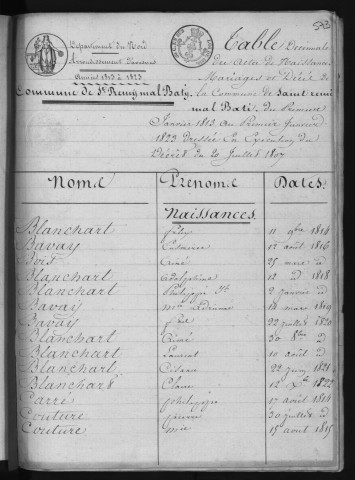 593
Département du Nord
Arrondissement d'avesnes
Années 1813 à 1823
Commune de St Remy mal Baty.
Table Décennale
des Actes de Naissances
Mariages et Décès de
la Commune de Saint remi
mal Bati, du Premier
Janvier 1813 au Premier Janvier
1823 dressée en Execution du
Décret du 20 Juillet 1807
Noms Prenoms Dates.
Naissances.
Blanchart 11 9bre 1814
Bavay 12 août 1816
Aimé 25 mars id
Blanchart Adolphine 12 id 1818
Blanchart Philippe Jh 2 janvier id
Bavay 14 mars 1819
Bavay 22 juillet 1820
Blanchart Aimé 30 8bre id
Blanchart Laurent 10 août id
Blanchart 22 juin 1821
Blanchart 12 Xbre 1822
Carré philippe 17 août 1814
Couture pierre 30 juillet id
Couture 15 août 1815